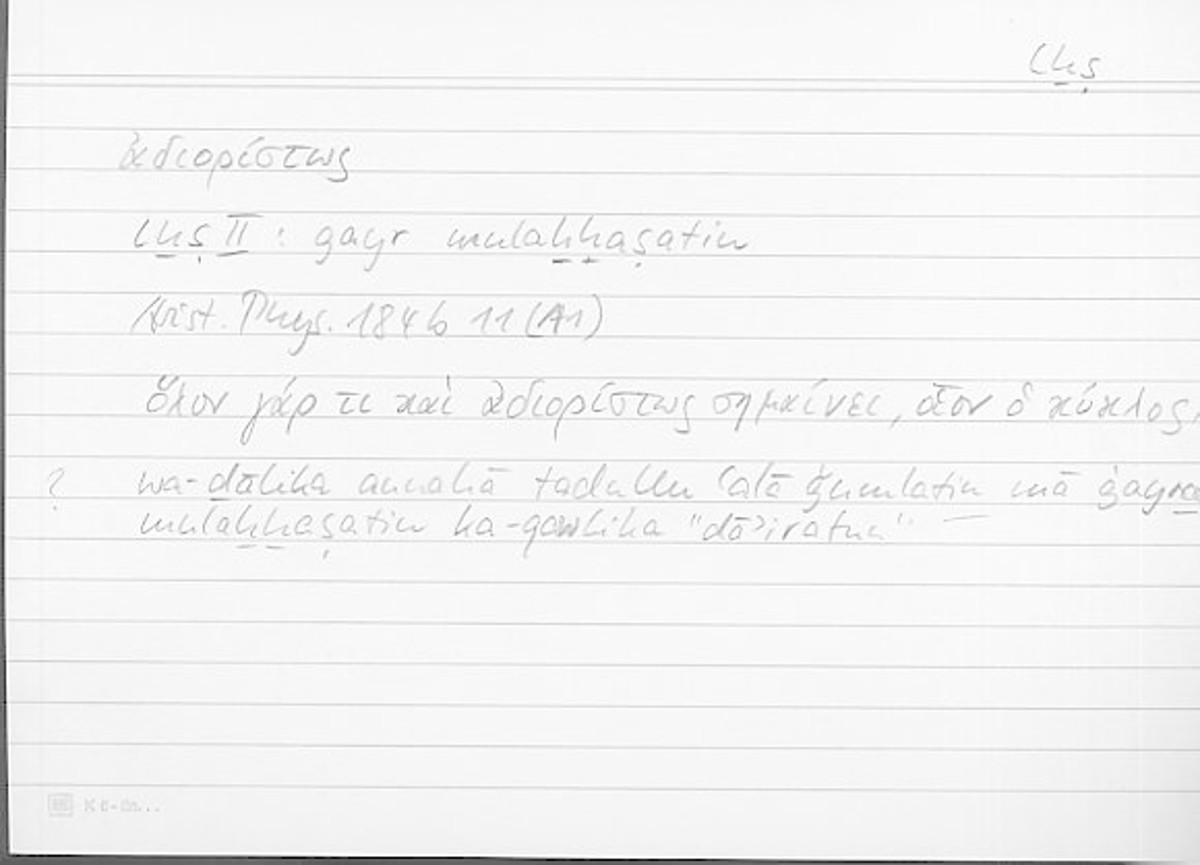 lḫṣ
ἀδιορίστως
lḫṣ II : ġayr mulaḫḫaṣatin
Arist. Phys. 184b 11 (A1)
Ὅλον γάρ τι καὶ ἀδιορίστως σημαίνει, οἷον ὁ κύκλος,
? wa-ḏālika annahā tadullu ʿalā ǧumlatin mā ġayra
mulaḫḫaṣatin ka-qawlika "dāʾiratun" —